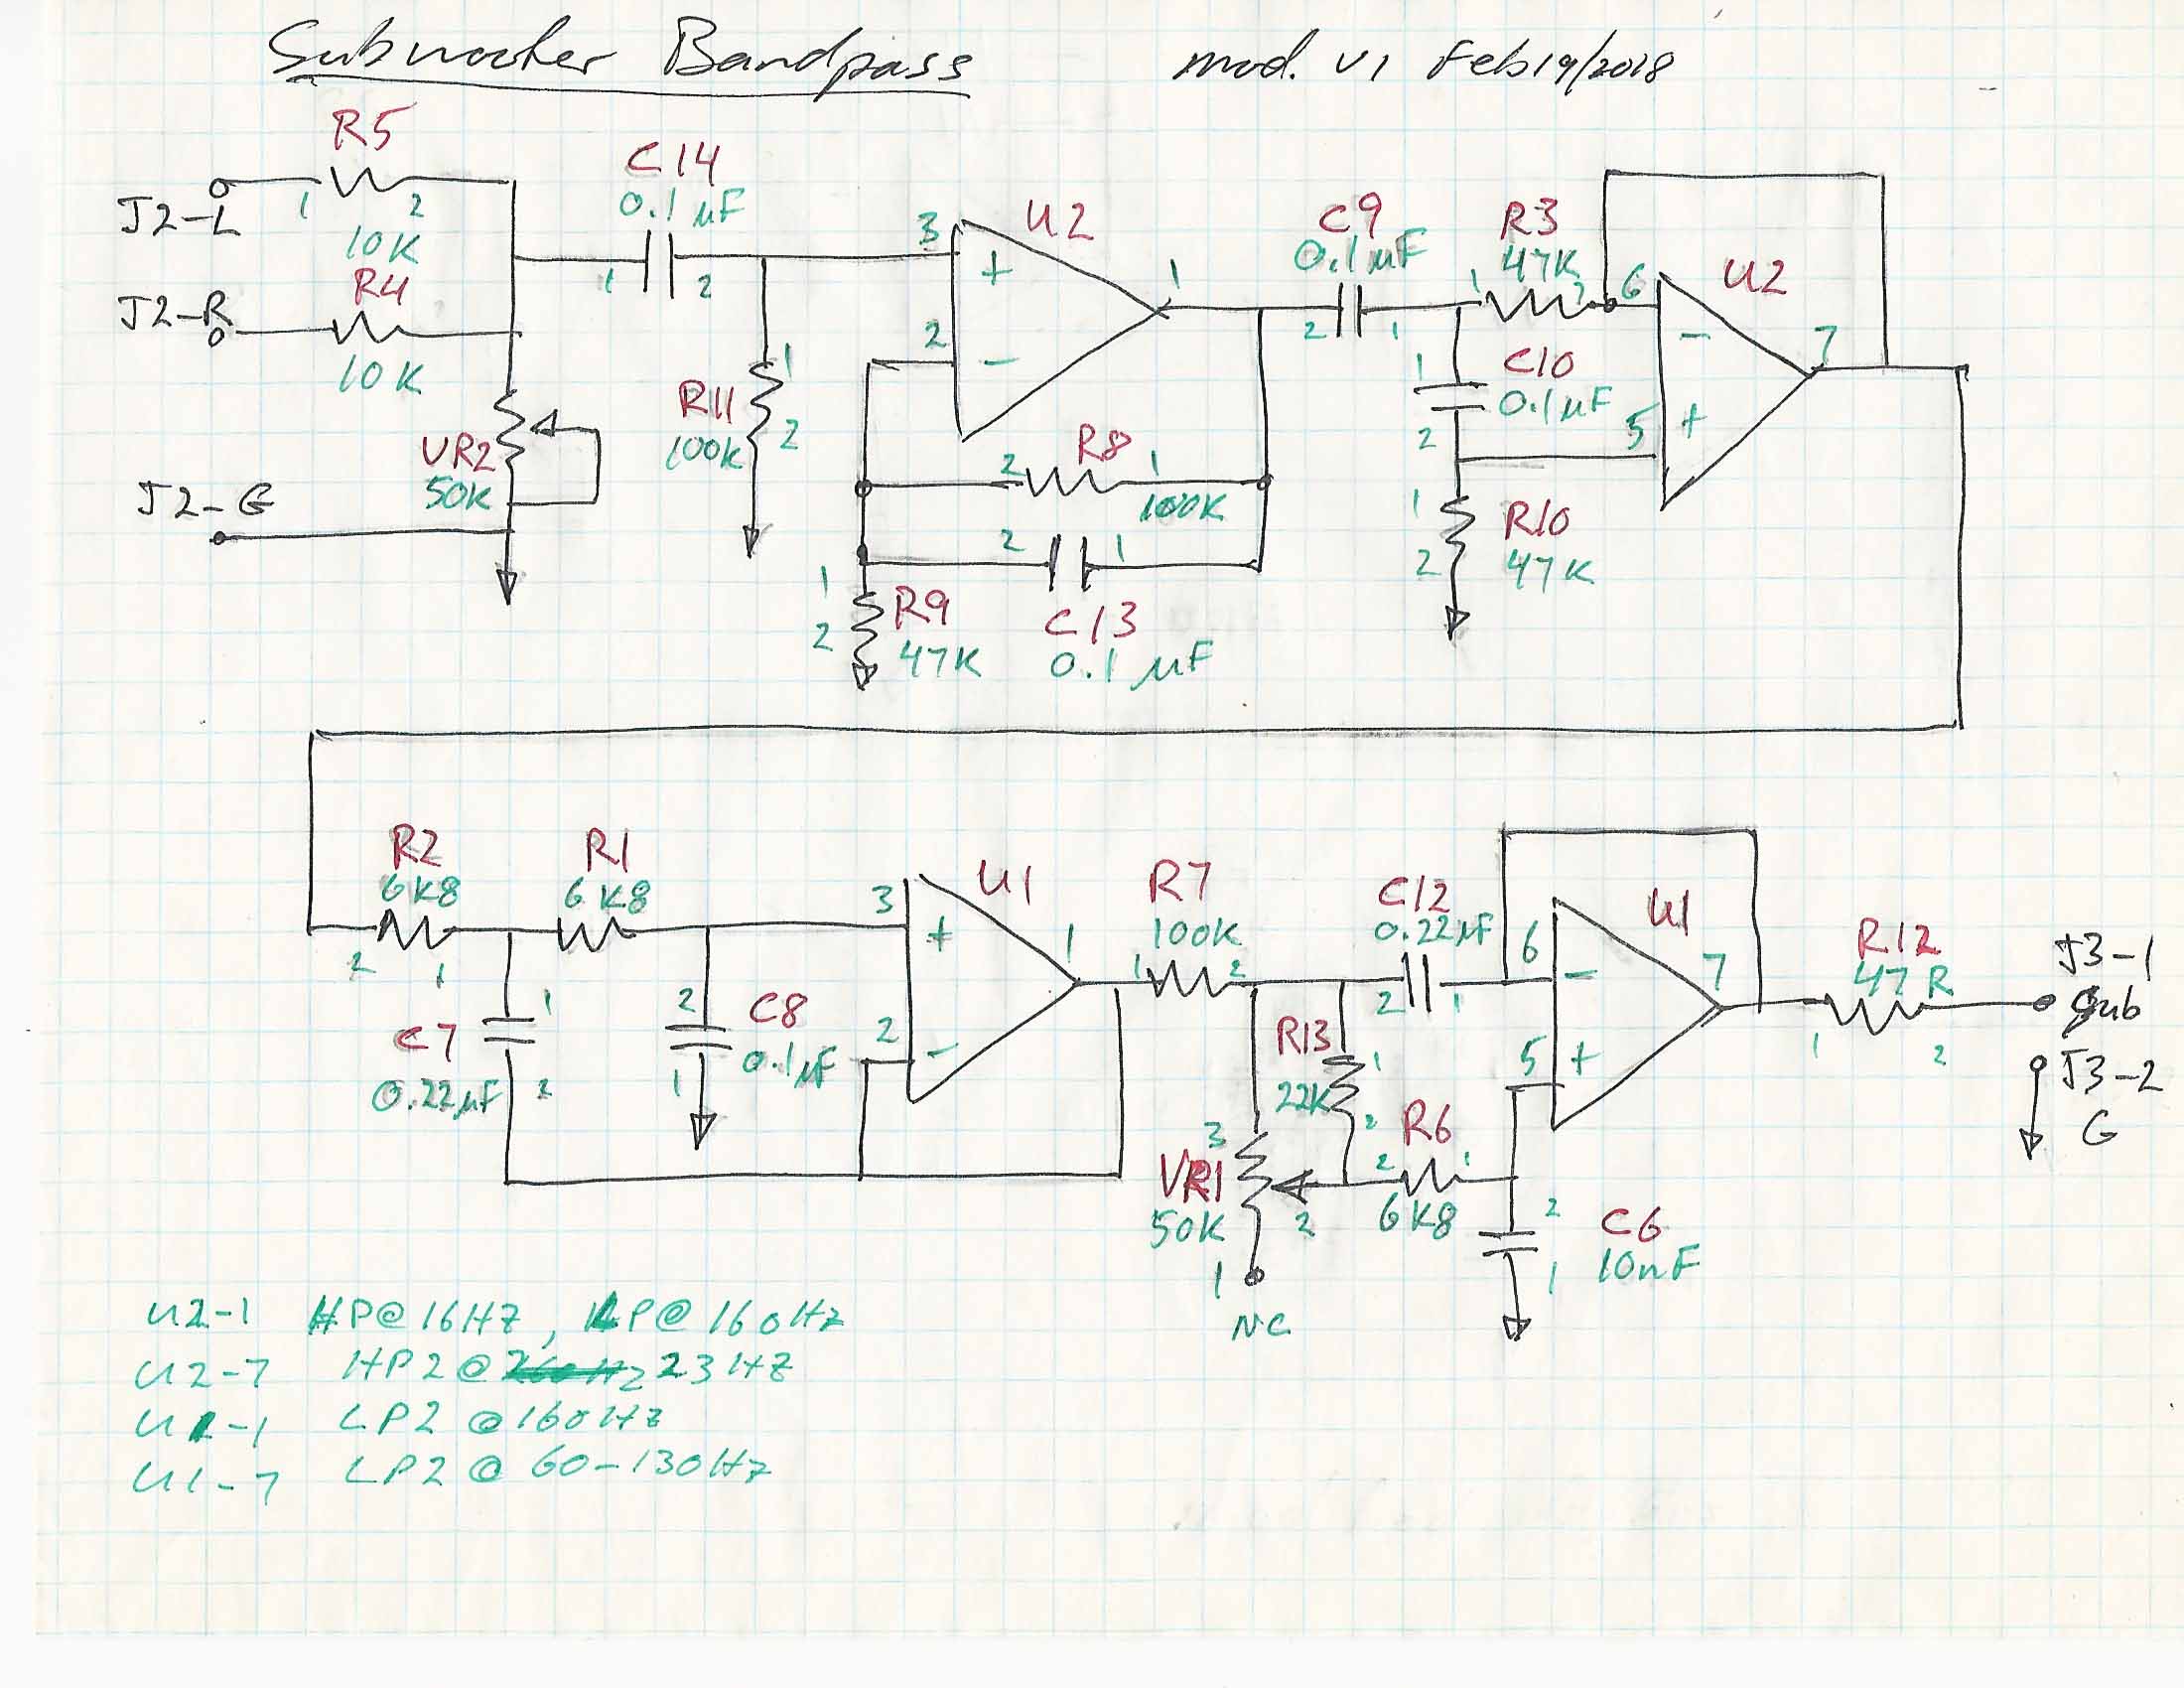 Subwoofer Bandpass mod. V1 Feb 19/2018
R5
J2-L 1 2
10K
R4
J2-R
10K
VR2
50K
J2-G
C14
0.1µF
1 2
R11
100K
1
2
U2
3 +
2 -
1
2 R8 1
100K
2 1
C13
0.1µF
1
2
R9
47K
C9
0.1µF
2 1
R3
47K
1 2
C10
0.1µF
1
2
R10
47K
1
2
U2
6 -
5 +
7
R2
6K8
2 1
R1
6K8
C7
0.22µF
1
2
C8
0.1µF
2
1
U1
3 +
2 -
1
R7
100K
1 2
R13
22K
1
2
VR1
50K
3
2
1
NC
C12
0.22µF
2 1
R6
2 1
6K8
C6
10nF
2
1
U1
6 -
5 +
7
R12
47R
1 2
J3-1
Sub
J3-2
G
U2-1 HP@16HZ, LP@160Hz
U2-7 HP2@ 23HZ
U1-1 LP2@160Hz
U1-7 LP2@ 60-130Hz